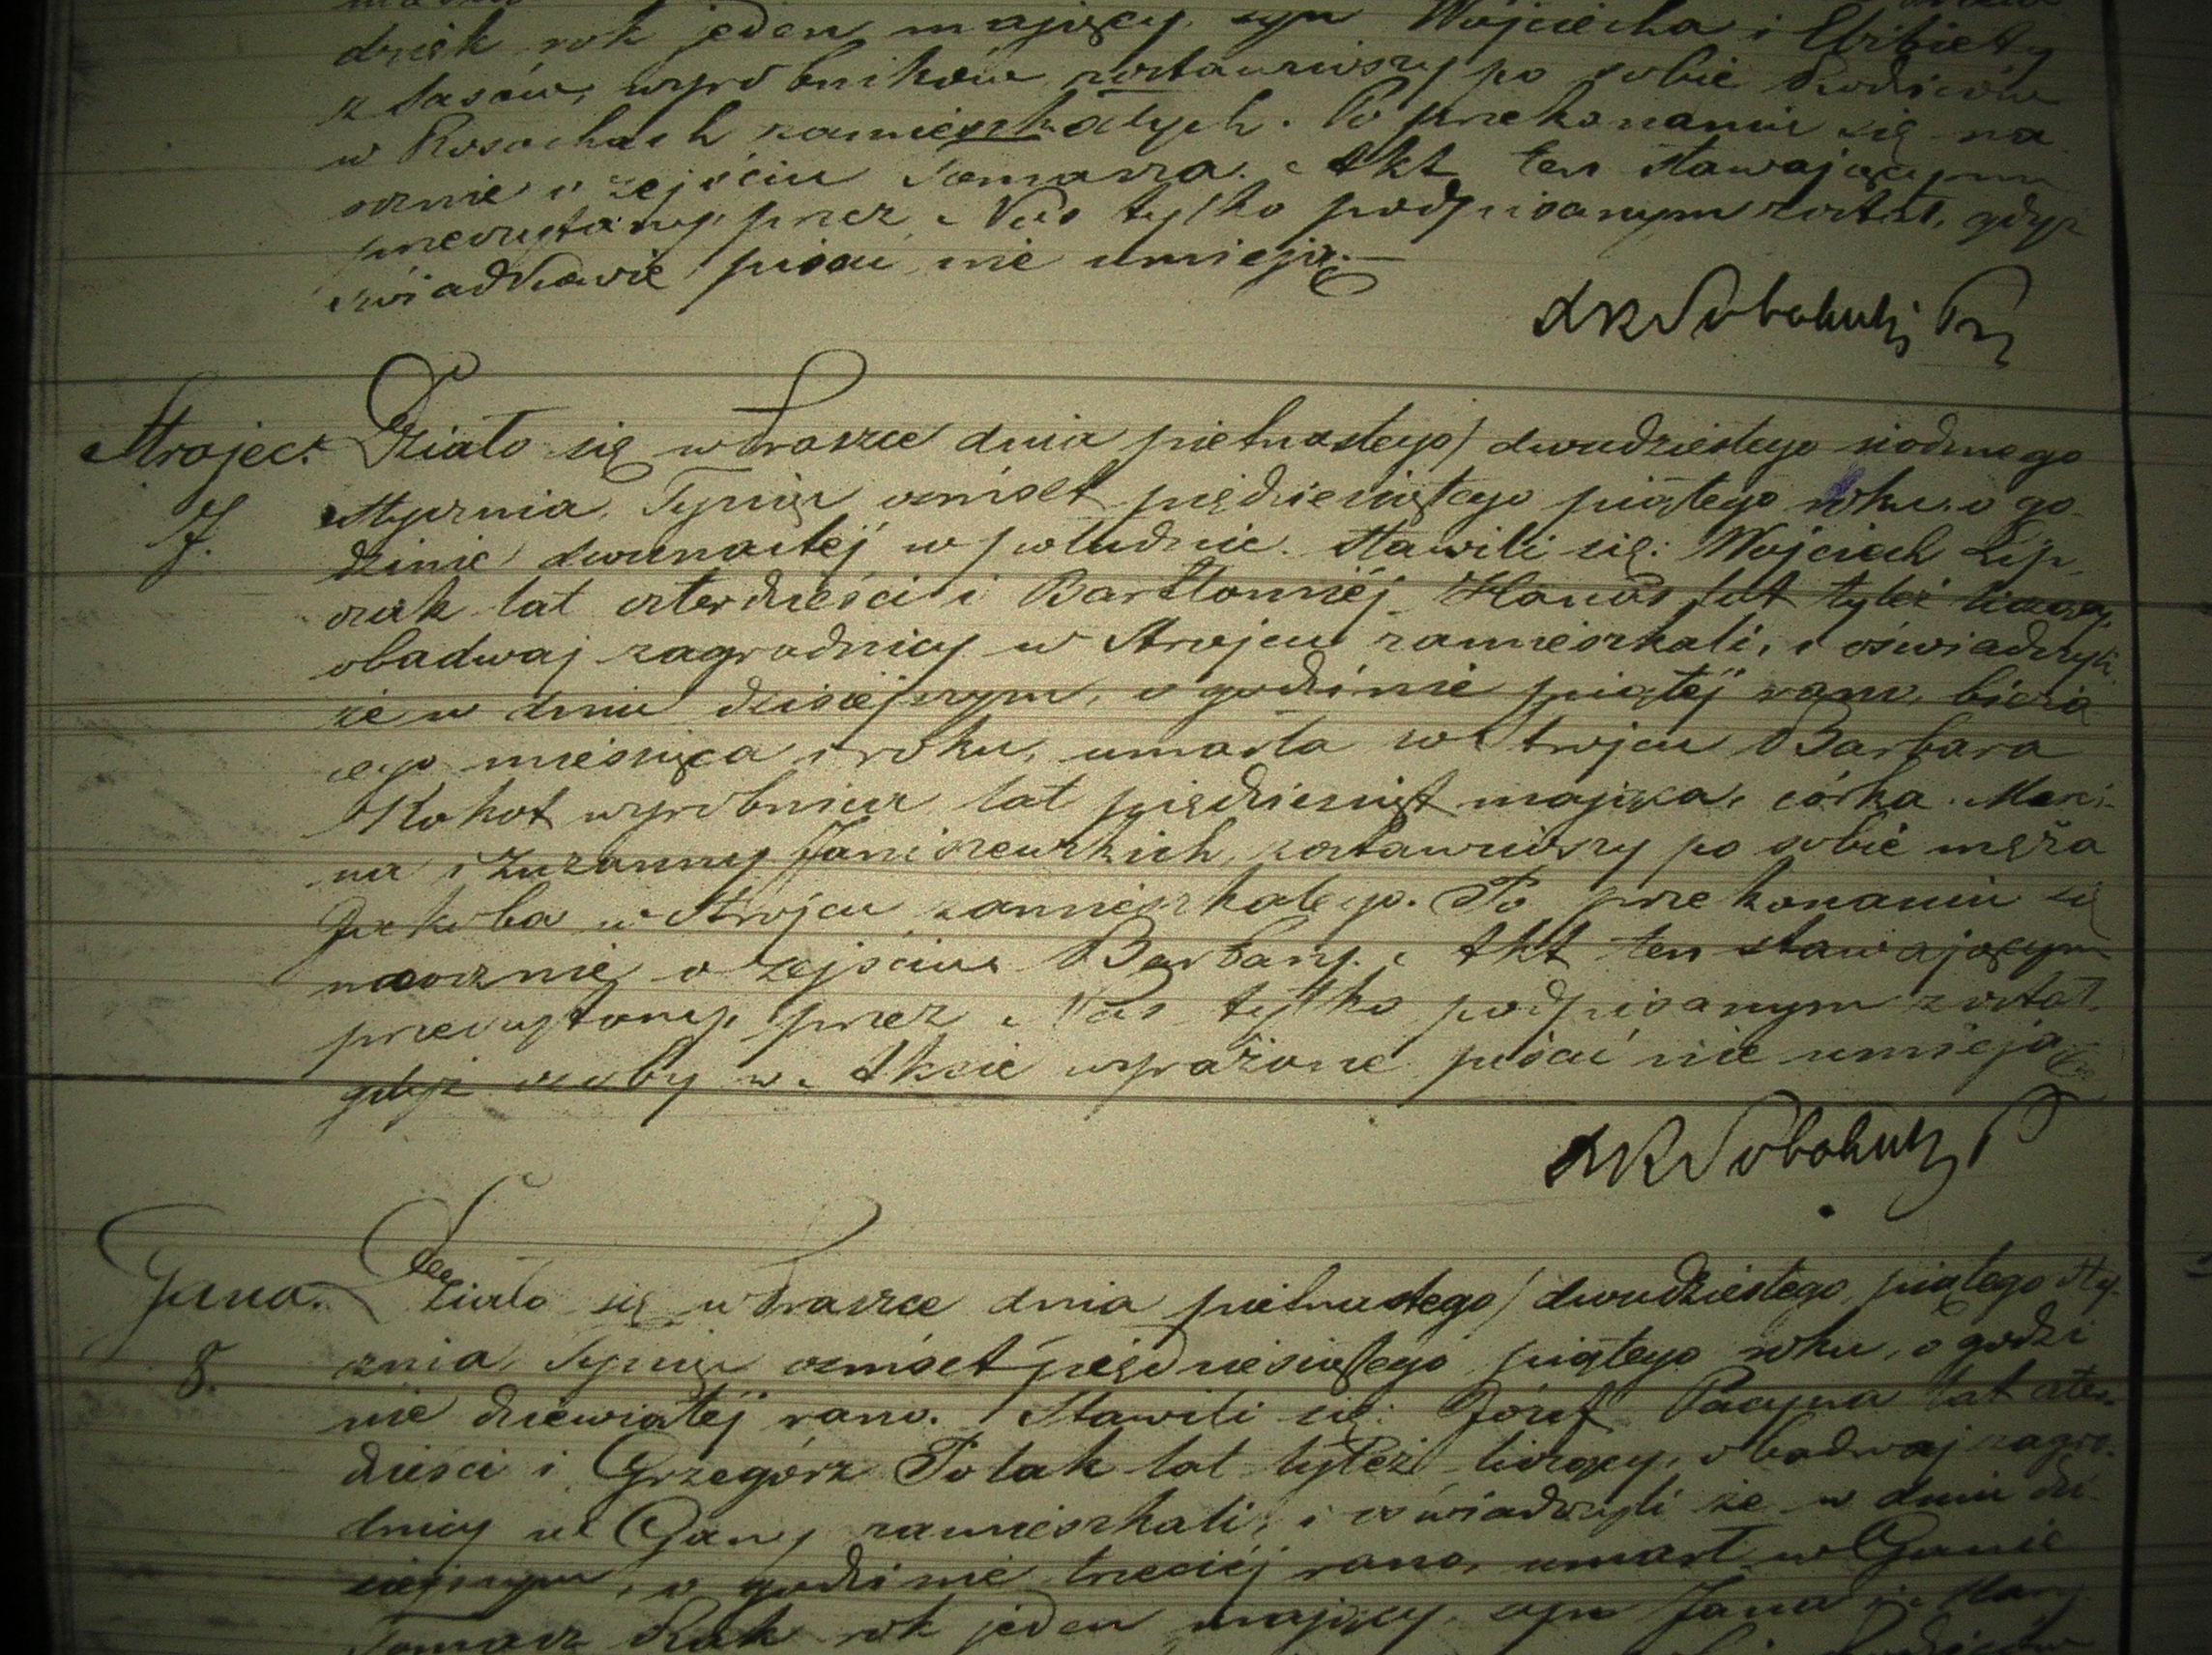 dziek rok jeden mający, syn Wojciecha i Elżbiety
z Sasów, wyrobników, zostawiwszy po sobie Rodziców
w Rosochach zamieszkałych. Po przekonaniu się na
ocznie o zejściu Tomasza. Akt ten stawającym
przeczytany, przez Nas tylko podpisanym został, gdyż
świadkowie pisać nie umieją.
Strojec. Działo się w Praszce dnia piętnastego/ dwudziestego siódmego
7. Stycznia, Tysiąc ośmset pięćdziesiątego piątego roku, o go
dzinie dwunastéj w południe. Stawili się: Wojciech Lip
czak lat czterdzieści i Bartłomiéj Hanas lat tyleż liczący,
obadwaj zagrodnicy w Strojcu zamieszkali, i oświadczyli,
że w dniu dzisiéjszym, o godzinie piątéj rano, bieżą
cego miesiąca i roku, umarła w Strojcu Barbara
Kokot wyrobnica lat pięćdziesiąt mająca, córka Marci-
na i Zuzanny Janiszewskich, zostawiwszy po sobie męża
Jakóba w Strojcu zamieszkałego. Po przekonaniu się
naocznie o zejściu Barbary. Akt ten stawającym
przeczytany, przez Nas tylko podpisanym został,
gdyż osoby w Akcie wyrażone pisać nie umieją
Gana. Działo się w Praszce dnia piętnastego/ dwudziestego piątego Sty-
8. cznia, Tysiąc ośmset pięćdziesiątego piątego roku, o godzi
nie dziewiątéj rano. Stawili się: Józef Pacyna lat czter-
dzieści i Grzegórz Polak lat tyleż liczący, obadwaj zagro-
dnicy w Gany zamieszkali, i oświadczyli że w dniu dzi
siejszym, o godzinie trzeciéj rano, umarł w Ganie
Tomasz Kuk rok jeden mający, syn Jana i Mary